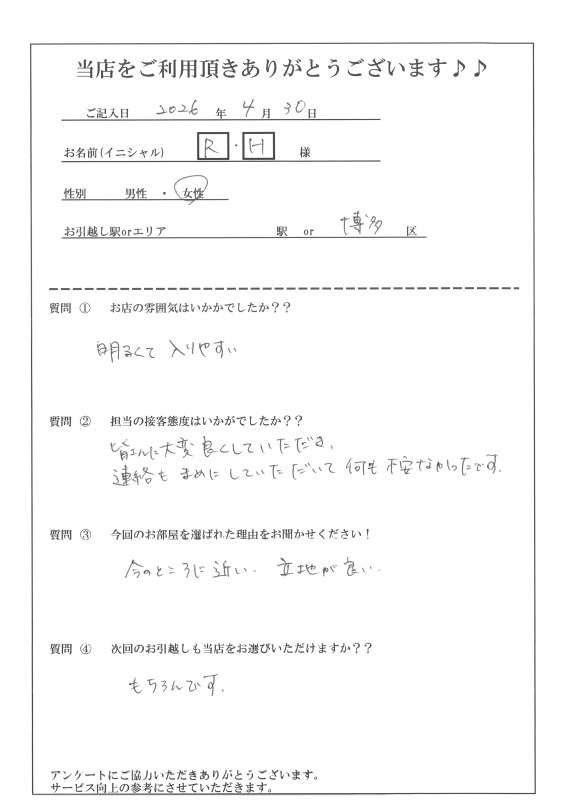 当店をご利用頂きありがとうございます♪♪
ご記入日 2026 年 4 月 30 日
お名前(イニシャル) R・H 様
性別 男性 ・ 女性
お引越し駅orエリア 駅 or 博多 区
質問 ① お店の雰囲気はいかかでしたか？？
明るくて 入りやすい
質問 ② 担当の接客態度はいかがでしたか？？
皆さんに大変良くしていただき、
連絡も まめに していただいて 何も 不安なかったです.
質問 ③ 今回のお部屋を選ばれた理由をお聞かせください！
今のところに近い. 立地が良い.
質問 ④ 次回のお引越しも当店をお選びいただけますか？？
もちろんです.
アンケートにご協力いただきありがとうございます。
サービス向上の参考にさせていただきます。